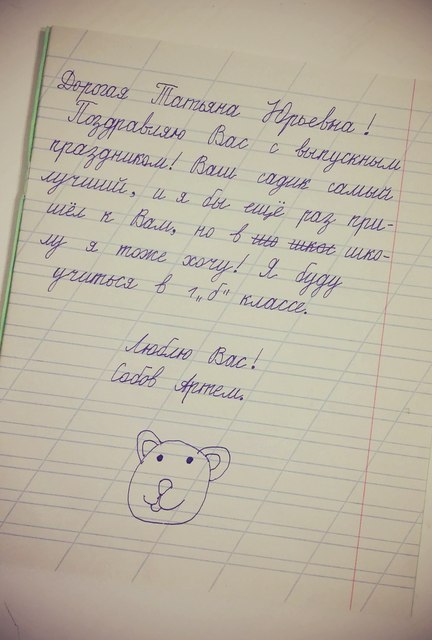 Дорогая Татьяна Юрьевна!
Поздравляю Вас с выпускным
праздником! Ваш садик самый
лучший, и я бы ещё раз при-
шёл к Вам, но в шко-
лу я тоже хочу! Я буду
учиться в 1 „б" классе.
Люблю Вас!
Собов Артем.